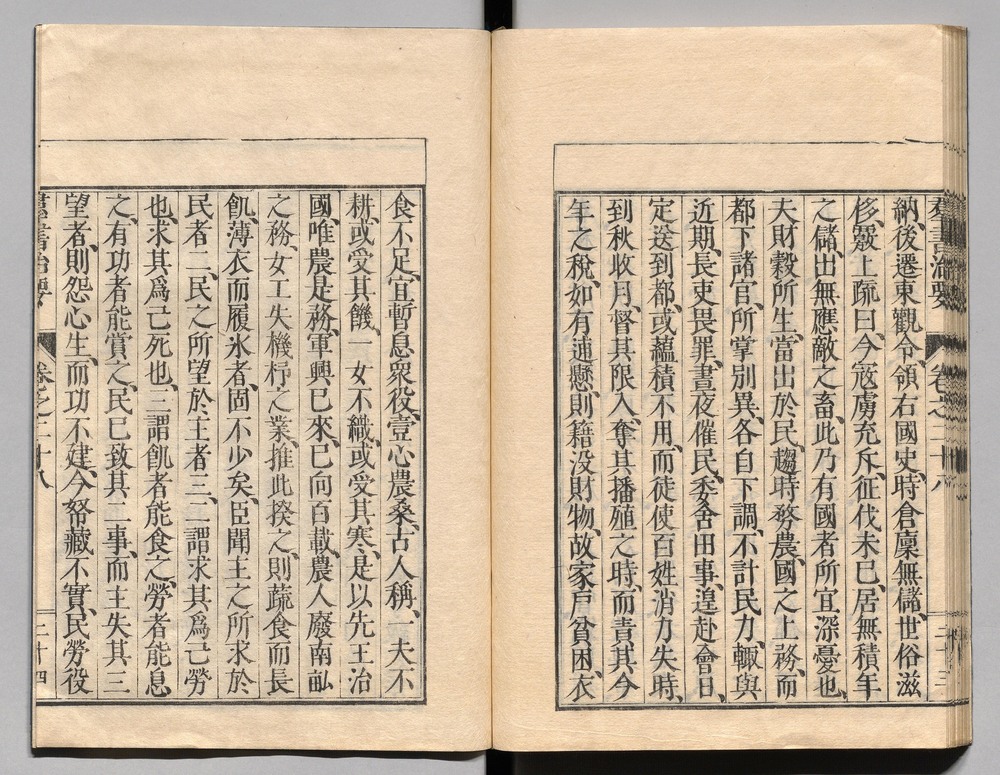 羣書治要 卷之二十八 二十三
納、後遷東觀令、領右國史、時倉廩無儲、世俗滋
侈、覈上疏曰、今寇虜充斥、征伐未已、居無積年
之儲、出無應敵之畜、此乃有國者所宜深憂也、
夫財穀所生、當出於民、趨時務農、國之上務、而
都下諸官、所掌別異、各自下調、不計民力、輙與
近期、長吏畏罪、晝夜催民、委舍田事、遑赴會日、
定送到都、或蘊積不用、而徒使百姓消力失時、
到秋收月、督其限入、奪其播殖之時、而責其今
年之稅、如有逋懸、則籍没財物、故家戶貧困、衣
食不足、宜暫息衆役、壹心農桑、古人稱、一夫不
耕、或受其饑、一女不織、或受其寒、是以先王治
國、唯農是務、軍興已來、已向百載、農人廢南畝
之務、女工失機杼之業、推此揆之、則蔬食而長
飢、薄衣而履氷者、固不少矣、臣聞主之所求於
民者二、民之所望於主者三、二謂求其爲己勞
也、求其爲己死也、三謂飢者能食之、勞者能息
之、有功者能賞之、民已致其二事、而主失其三
望者、則怨心生、而功不建、今帑藏不實、民勞役
羣書治要 卷之二十八 二十四